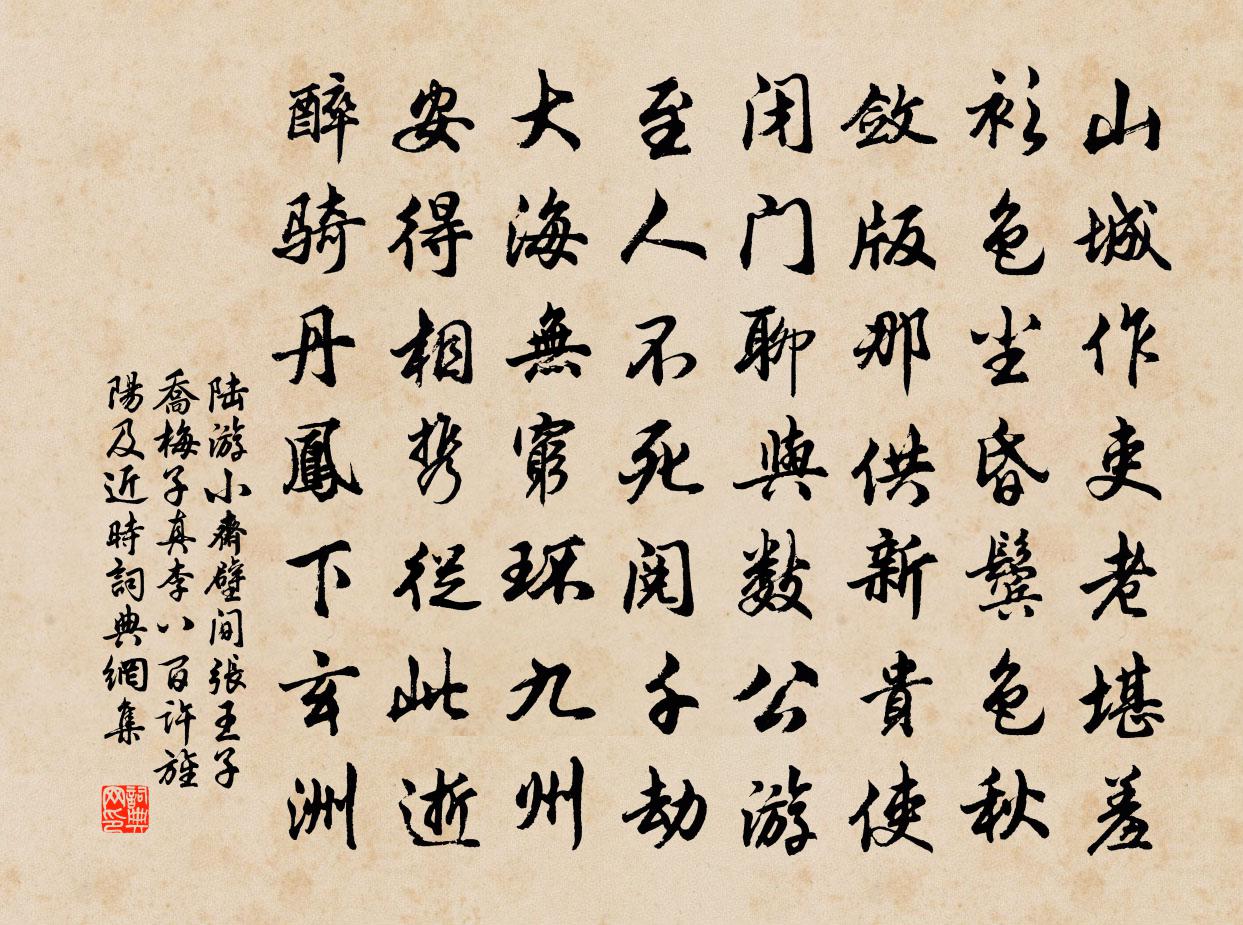 山城作吏老堪羞
衫色尘昏鬓色秋
敛版那供新貴使
闭门聊與数公游
至人不死阅千劫
大海無窮环九州
安得相携從此逝
醉骑丹鳳下玄洲
陆游小齋壁间張王子
喬梅子真李八百许旌
陽及近時詞典網集
詞典网印